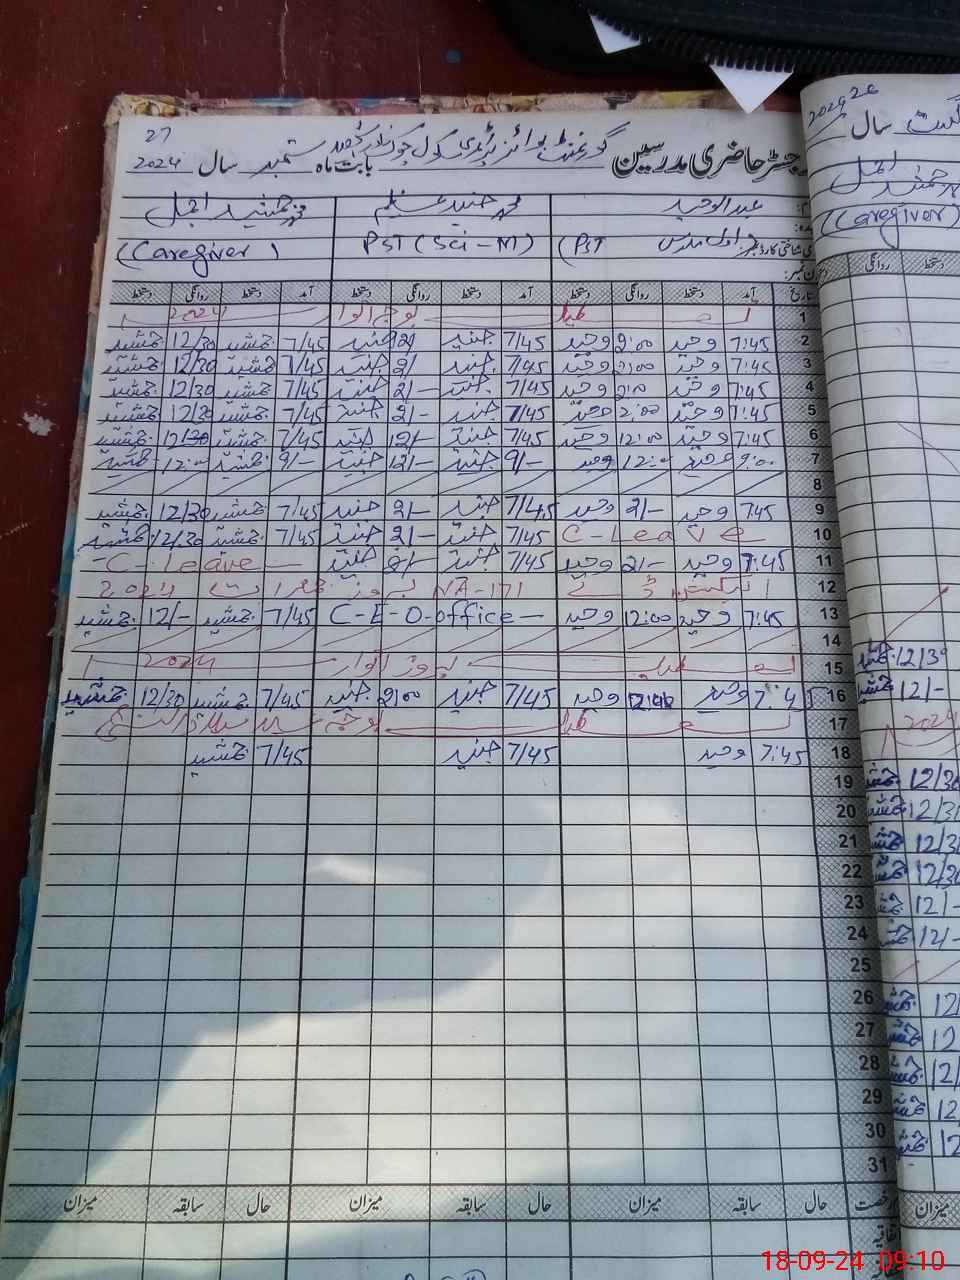 رجسٹر حاضری مدرسین گورنمنٹ بوائز پرائمری سکول بابت ماہ ستمبر سال 2024
27
عبدالوحید محمد جنید عظیم محمد جمشید اجمل
اول مدرس (PST PST (Sci-M) (Caregiver)
تاریخ آمد دستخط روانگی دستخط آمد دستخط روانگی دستخط آمد دستخط روانگی دستخط
1 تعطیل بوجہ اتوار 2024
2 7:45 وحید 2:00 وحید 7/45 جنید 2/ جنید 7/45 جمشید 12/30 جمشید
3 7:45 وحید 2:00 وحید 7/45 جنید 2/ جنید 7/45 جمشید 12/30 جمشید
4 7:45 وحید وحید 7/45 جنید 2/- جنید 7/45 جمشید 12/30 جمشید
5 7:45 وحید 2:00 وحید 7/45 جنید 2/- جنید 7/45 جمشید 12/30 جمشید
6 7:45 وحید 12:00 وحید 7/45 جنید 12/- جنید 7/45 جمشید 12/30 جمشید
7 9:00 وحید 12:00 وحید 9/- جنید 12/- جنید 9/- جمشید 12:00 جمشید
8
9 7:45 وحید 2/- وحید 7/45 جنید 2/- جنید 7/45 جمشید 12/30 جمشید
10 C-Leave 7/45 جنید 2/- جنید 7/45 جمشید 12/30 جمشید
11 7:45 وحید 2/- وحید 7/45 جنید 2/- جنید C-Leave
12 الیکشن ڈے NA-171 بروز جمعرات 2024
13 7:45 وحید 12:00 وحید C-E-O-office 7/45 جمشید 12/- جمشید
14
15 تعطیل بروز اتوار 2024
16 7:45 وحید وحید 7/45 جنید 2:00 جنید 7/45 جمشید 12/30 جمشید
17 تعطیل بوجہ عید میلاد النبی
18 7:45 وحید 7/45 جنید 7/45 جمشید
19
20
21
22
23
24
25
26
27
28
29
30
31
رخصت حال سابقہ میزان حال سابقہ میزان حال سابقہ میزان
اتفاقیہ
سال 2024
26
(Caregiver)
روانگی دستخط
12/30 جمشید
12/- جمشید
2024
میزان
18-09-24 09:10